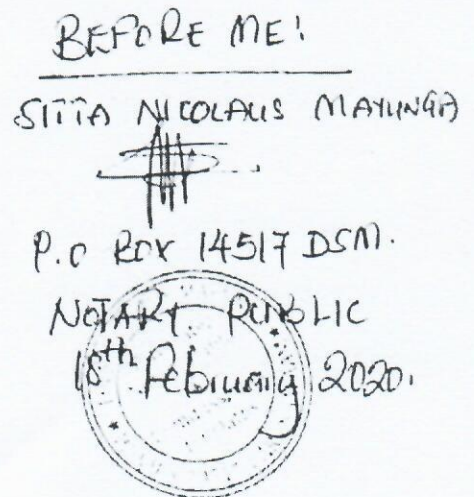 BEFORE ME:
SITTA NICOLAUS MAYUNGA
P.O BOX 14517 DSM.
NOTARY PUBLIC
18th February 2020.